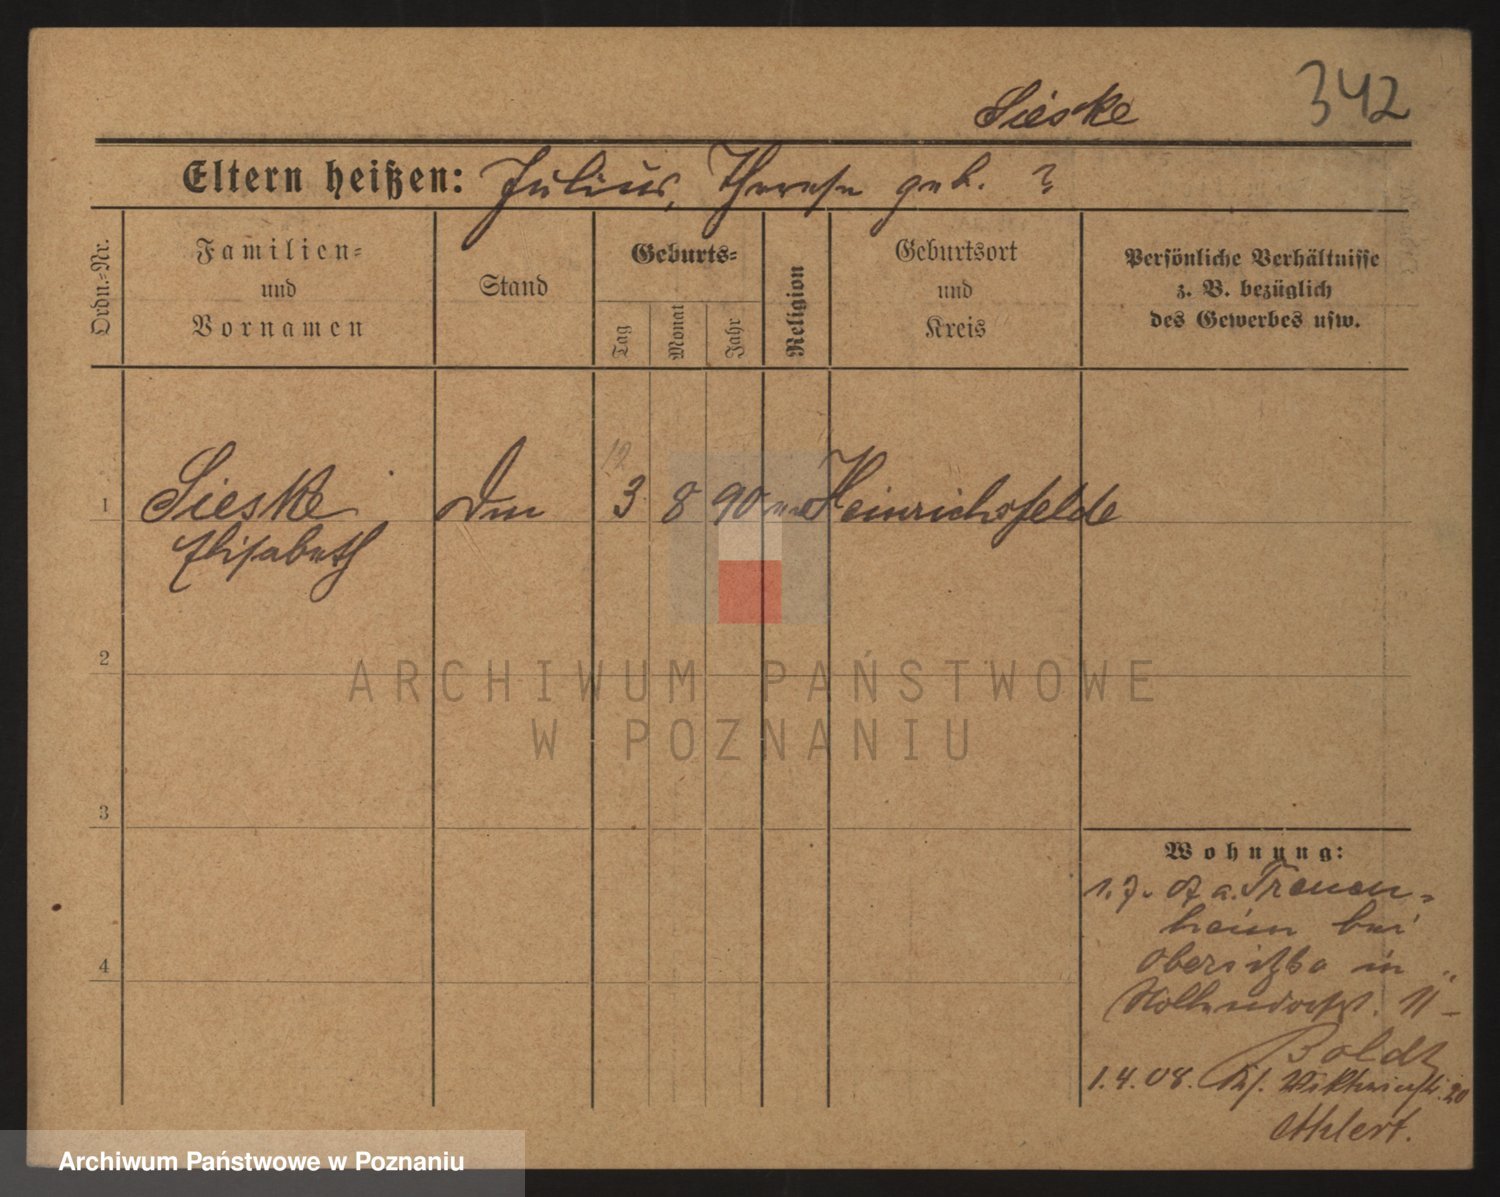 342
Sieske
Eltern heißen: Julius, Therese geb. ?
Ordn.-Nr.
Familien-
und
Vornamen
Stand
Geburts-
Tag
Monat
Jahr
Religion
Geburtsort
und
Kreis
Persönliche Verhältnisse
z. B. bezüglich
des Gewerbes usw.
12
1 Sieske Dm 3 8 90 Heinrichsfelde
Elisabeth
2
3
4
Wohnung:
heim bei
Obersitzko in
Boldt
1.4.08. 20
Ahlert.
ARCHIWUM PAŃSTWOWE
W POZNANIU
Archiwum Państwowe w Poznaniu